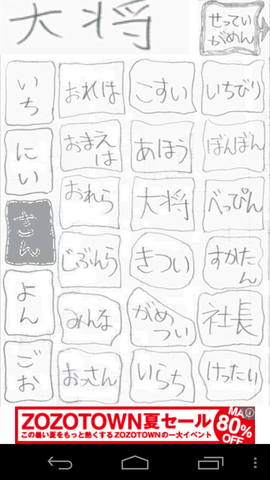 大将
せってい
がめん
いち
おれは
こすい
いちびり
にい
おまえ
は
あほう
ぼんぼん
さん
おれら
大将
べっぴん
じぶんら
きつい
すかた
ん
よん
みんな
がめ
つい
社長
ごお
おっさん
いらち
けったい
ZOZOTOWN夏セール
この暑い夏をもっと熱くするZOZOTOWNの一大イベント
MAX
80%
OFF